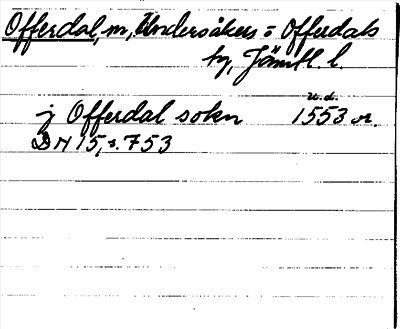 Offerdal, m, Undersåkers o Offerdals
ty, Jämtl l.
u.d.
j Offerdal sokn 1553 or.
DN 15, s. 753